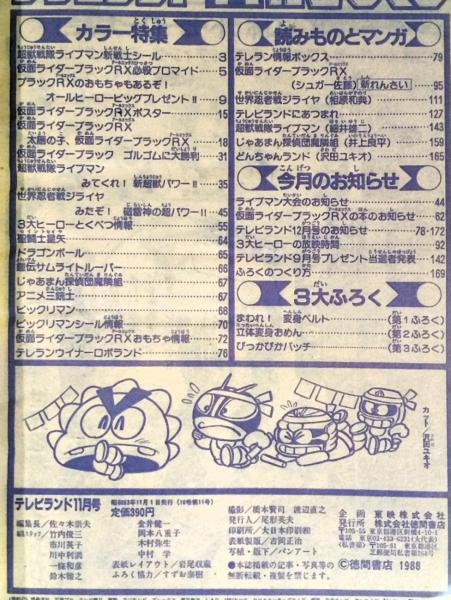 カラー特集
超獣戦隊ライブマン新戦士シール 3
仮面ライダーブラックRX必殺ブロマイド 5
ブラックRXのおもちゃもあるぞ!
オールヒーロービッグプレゼント!! 9
仮面ライダーブラックRXポスター 15
太陽の子、仮面ライダーブラックRX 18
仮面ライダーブラック ゴルゴムに大勝利 31
超獣戦隊ライブマン
みてくれ!新超獣パワー!! 35
世界忍者戦ジライヤ
みたぞ!磁雷神の超パワー!! 45
3大ヒーローとくべつ情報 55
聖闘士星矢 64
ドラゴンボール 65
鎧伝サムライトルーパー 66
じゃあまん探偵団魔隣組 66
アニメ三銃士 67
ビックリマン 68
ビックリマンシール情報 70
仮面ライダーブラックRXおもちゃ情報 72
テレランウイナーロボランド 76
読みものとマンガ
テレラン情報ボックス 79
仮面ライダーブラックRX
(シュガー佐藤) 新れんさい 95
世界忍者戦ジライヤ(相原和典) 111
テレビランドにあつまれ 127
超獣戦隊ライブマン(細井雄二) 143
じゃあまん探偵団魔隣組(井上良平) 159
どんちゃんランド(沢田ユキオ) 165
今月のお知らせ
ライブマン大会のお知らせ 44
仮面ライダーブラックRXの本のお知らせ 82
テレビランド12月号のお知らせ 78・172
3大ヒーローの放映時間 92
テレビランド9月号プレゼント当選者発表 142
ふろくのつくり方 169
3大ふろく
まわれ!変身ベルト (第1ふろく)
立体変身おめん (第2ふろく)
ぴっかぴかバッチ (第3ふろく)
カット/沢田ユキオ
テレビランド11月号 昭和63年11月1日発行(16巻第11号)
定価390円
編集長/佐々木崇夫 金井健一
編集スタッフ/竹内俊三 岡本八重子
市川英子 木村弥生
川中利満 中村学
一條和彦 表紙レイアウト/岩尾収蔵
鈴木雅之 ふろく協力/すずお泰樹
撮影/橋本賢司 渡辺直之
発行人/尾形英夫
印刷所/大日本印刷㈱
表紙製版/吉岡正治
写植・版下/バンアート
企画 東映株式会社
発行所 株式会社徳間書店
〒105-55 東京都港区新橋4-10-1
電話 03-433-6231(大代)
(私書箱)〒105-91 東京都港区
芝郵便局私書箱第36号
●本誌掲載の記事・写真等の
無断転載、複製を禁じます。
©徳間書店 1988